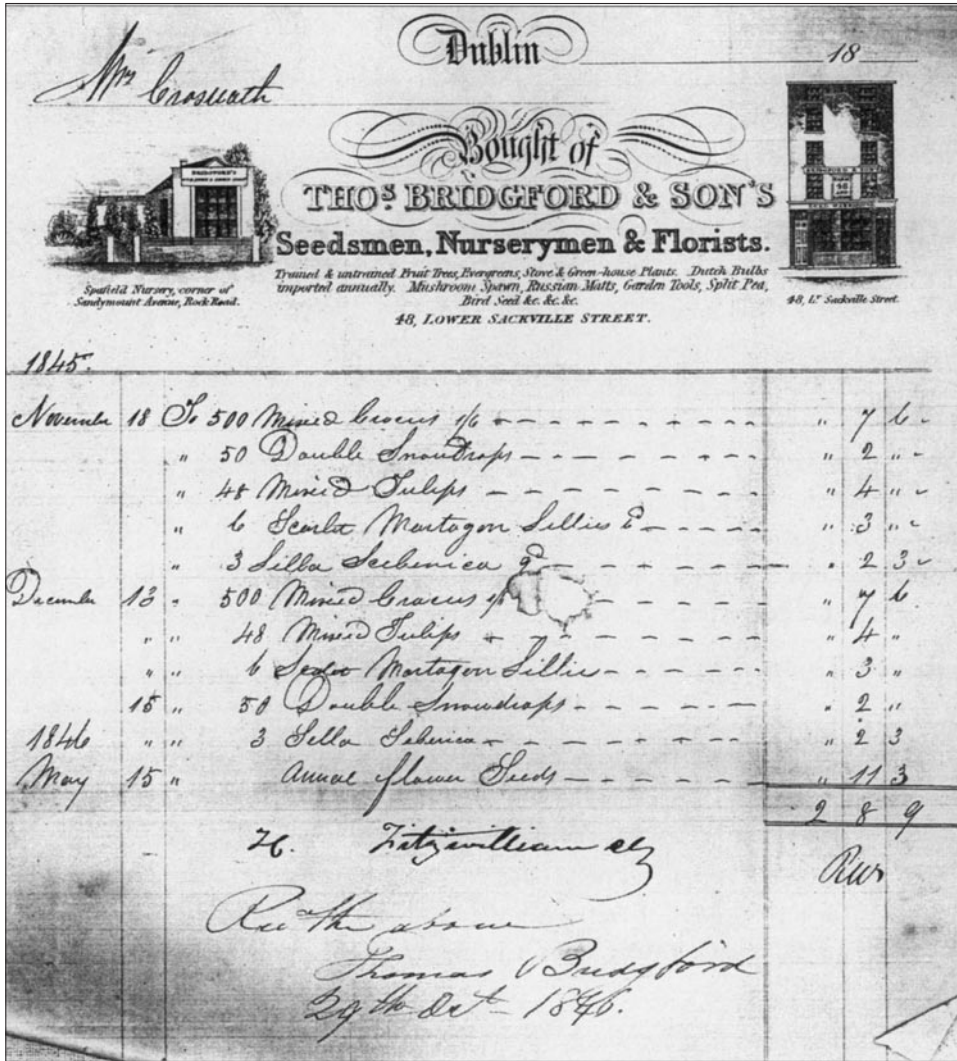 Dublin 18
Mrs Crosuath
BRIDGFORD'S
Bought of
THOs. BRIDGFORD & SON'S
Seedsmen, Nurserymen & Florists.
Trained & untrained Fruit Trees, Evergreens, Stove & Green-house Plants. Dutch Bulbs
imported annually. Mushroom Spawn, Russian Matts, Garden Tools, Split Pea,
Bird Seed &c. &c. &c.
48, LOWER SACKVILLE STREET.
Spafield Nursery, corner of
Sandymount Avenue, Rock Road.
48, Lr. Sackville Street.
1845.
November 18 To 500 Mixed Crocus 1/6 " 7 6
" 50 Double Snowdrops " 2 "
" 48 Mixed Tulips " 4 "
" 6 Scarlet Martagon Lillies 6d " 3 "
" 3 Silla Sciberica 9d " 2 3
December 13 " 500 Mixed Crocus " 7 6
" " 48 Mixed Tulips " 4 "
" " 6 Martagon Lillies " 3 "
15 " 50 Double Snowdrops " 2 "
1846 " " 3 Silla Siberica " 2 3
May 15 " Annual flower Seeds " 11 3
2 8 9
26. Fitzwilliam
Recd the above
Thomas Bridgford
29th Oct 1846.